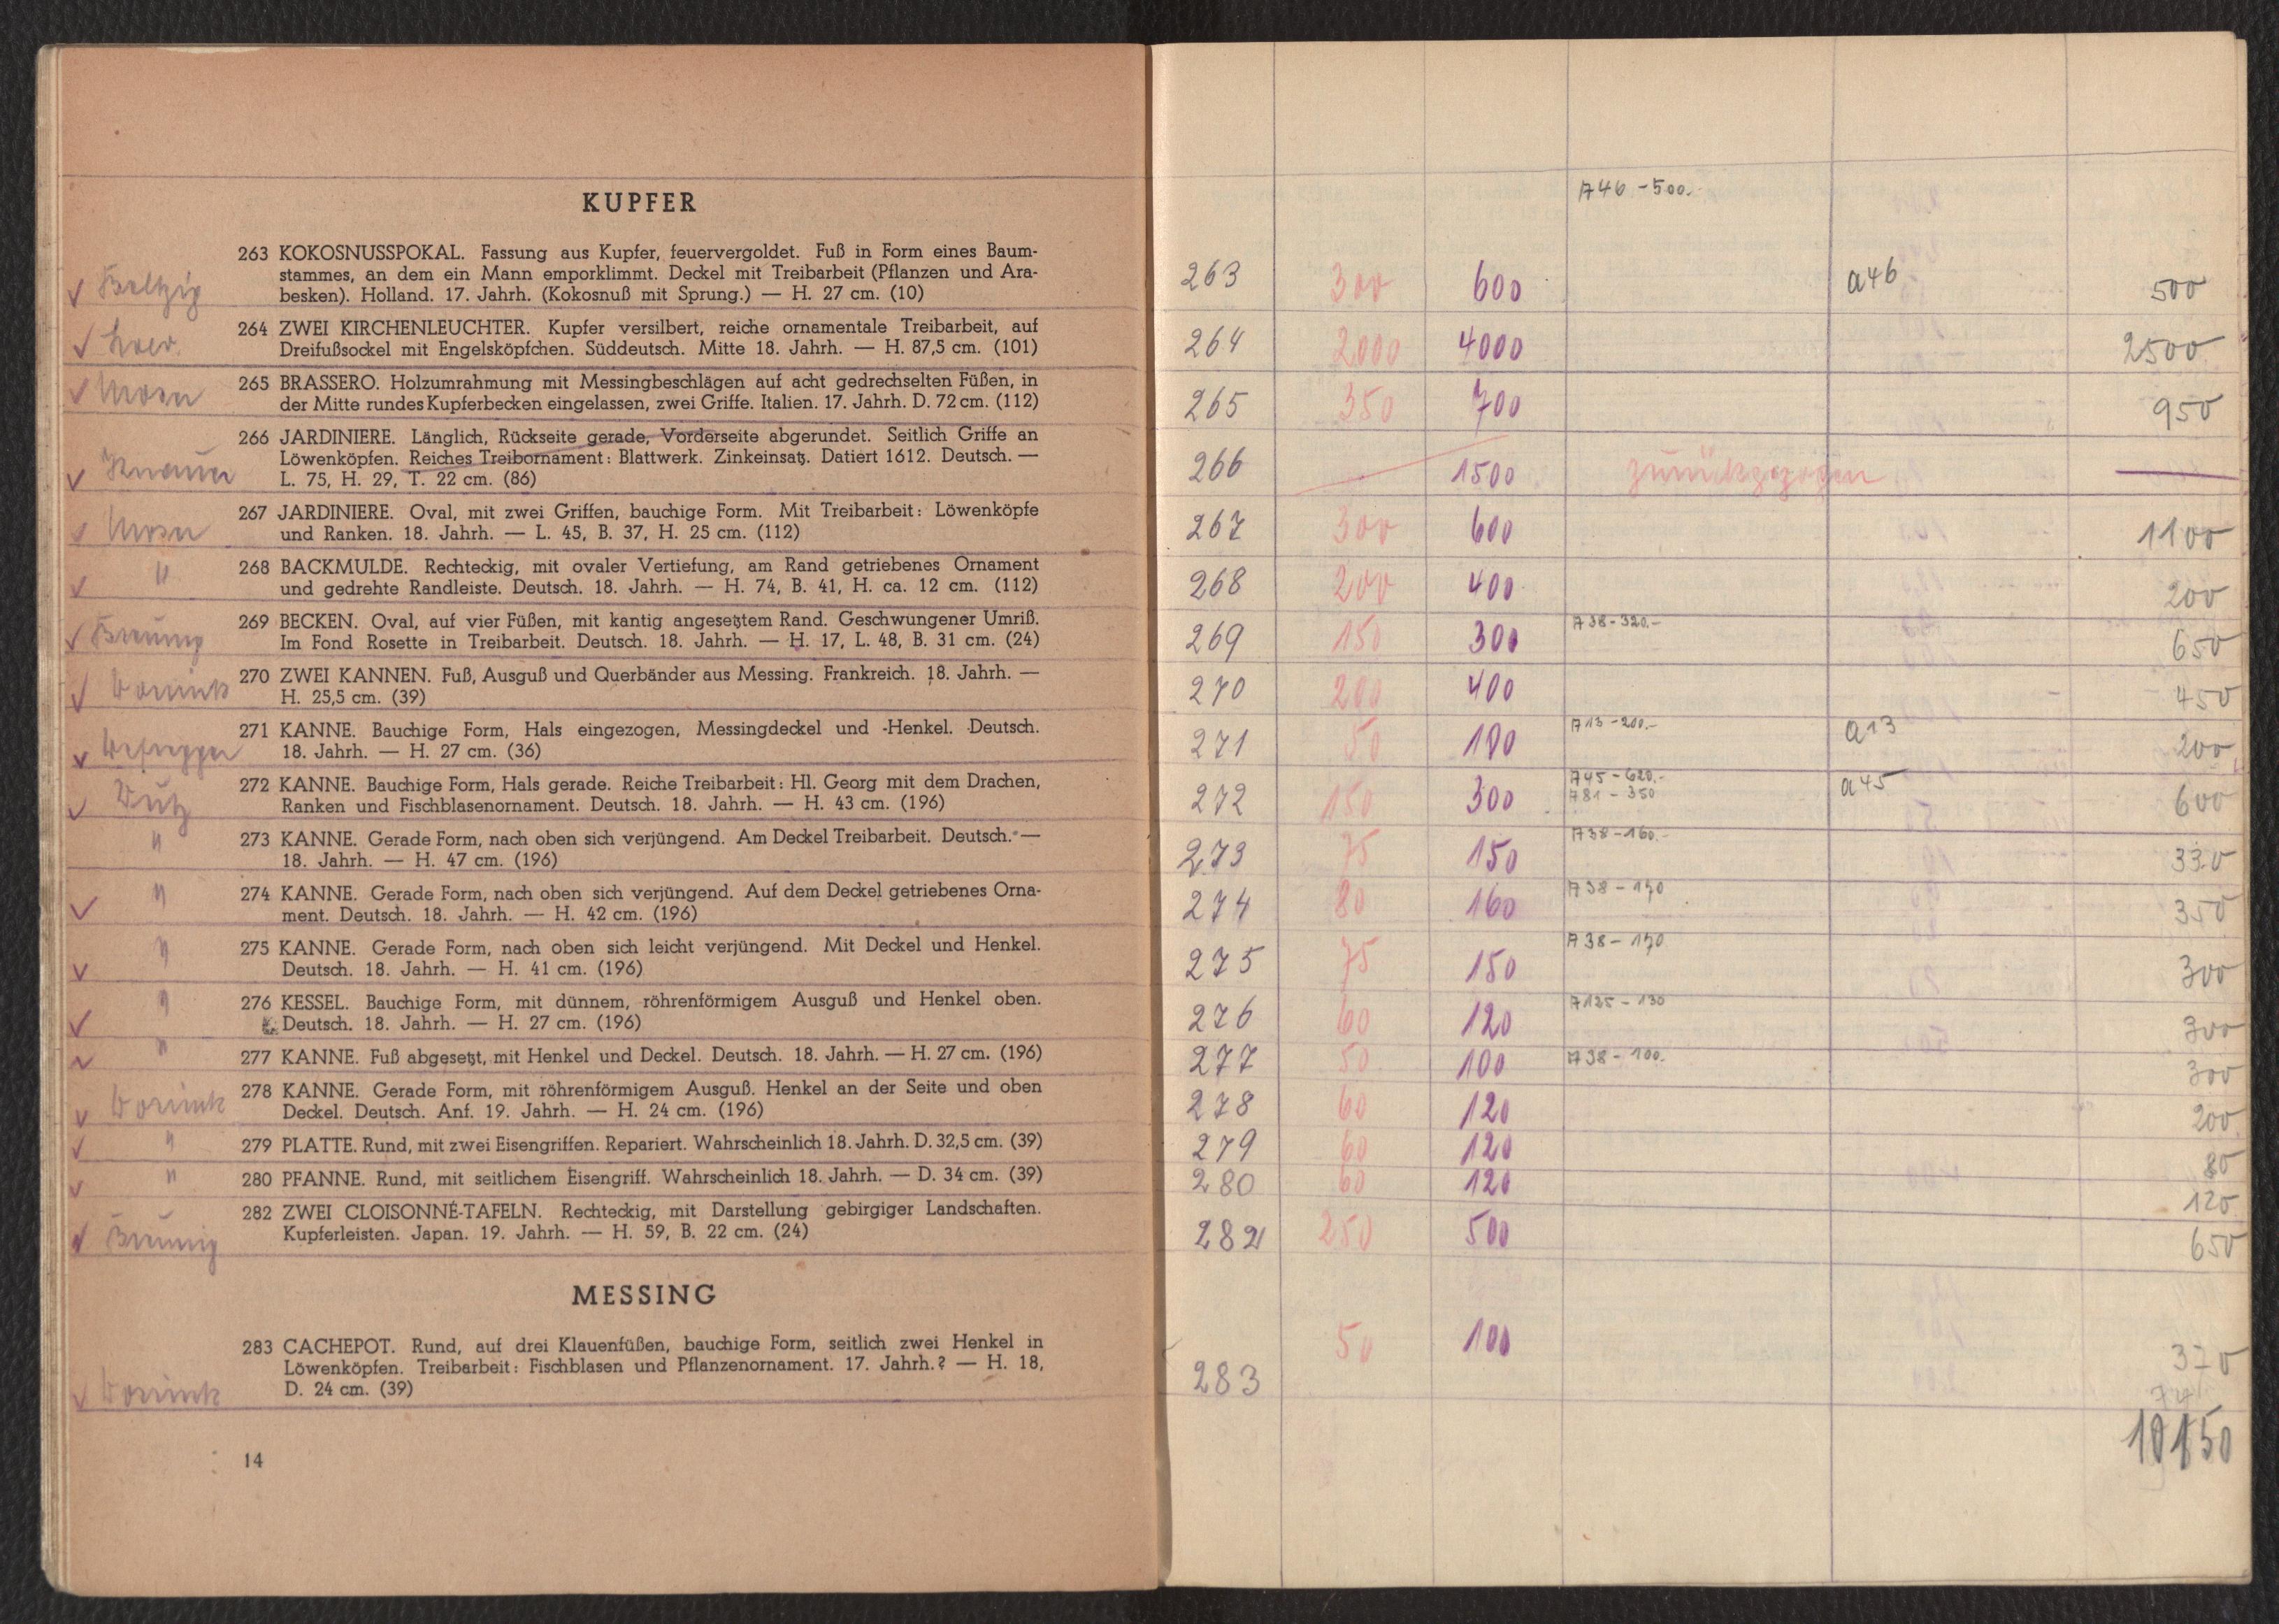 KUPFER
263 KOKOSNUSSPOKAL. Fassung aus Kupfer, feuervergoldet. Fuß in Form eines Baum-
stammes, an dem ein Mann emporklimmt. Deckel mit Treibarbeit (Pflanzen und Ara-
besken). Holland. 17. Jahrh. (Kokosnuß mit Sprung.) — H. 27 cm. (10)
264 ZWEI KIRCHENLEUCHTER. Kupfer versilbert, reiche ornamentale Treibarbeit, auf
Dreifußsockel mit Engelsköpfchen. Süddeutsch. Mitte 18. Jahrh. — H. 87,5 cm. (101)
265 BRASSERO. Holzumrahmung mit Messingbeschlägen auf acht gedrechselten Füßen, in
der Mitte rundes Kupferbecken eingelassen, zwei Griffe. Italien. 17. Jahrh. D. 72 cm. (112)
266 JARDINIERE. Länglich, Rückseite gerade, Vorderseite abgerundet. Seitlich Griffe an
Löwenköpfen. Reiches Treibornament: Blattwerk. Zinkeinsatz. Datiert 1612. Deutsch. —
L. 75, H. 29, T. 22 cm. (86)
267 JARDINIERE. Oval, mit zwei Griffen, bauchige Form. Mit Treibarbeit: Löwenköpfe
und Ranken. 18. Jahrh. — L. 45, B. 37, H. 25 cm. (112)
"
268 BACKMULDE. Rechteckig, mit ovaler Vertiefung, am Rand getriebenes Ornament
und gedrehte Randleiste. Deutsch. 18. Jahrh. — H. 74, B. 41, H. ca. 12 cm. (112)
269 BECKEN. Oval, auf vier Füßen, mit kantig angesetztem Rand. Geschwungener Umriß.
Im Fond Rosette in Treibarbeit. Deutsch. 18. Jahrh. — H. 17, L. 48, B. 31 cm. (24)
270 ZWEI KANNEN. Fuß, Ausguß und Querbänder aus Messing. Frankreich. 18. Jahrh. —
H. 25,5 cm. (39)
271 KANNE. Bauchige Form, Hals eingezogen, Messingdeckel und -Henkel. Deutsch.
18. Jahrh. — H. 27 cm. (36)
272 KANNE. Bauchige Form, Hals gerade. Reiche Treibarbeit: Hl. Georg mit dem Drachen,
Ranken und Fischblasenornament. Deutsch. 18. Jahrh. — H. 43 cm. (196)
"
273 KANNE. Gerade Form, nach oben sich verjüngend. Am Deckel Treibarbeit. Deutsch. —
18. Jahrh. — H. 47 cm. (196)
"
274 KANNE. Gerade Form, nach oben sich verjüngend. Auf dem Deckel getriebenes Orna-
ment. Deutsch. 18. Jahrh. — H. 42 cm. (196)
"
275 KANNE. Gerade Form, nach oben sich leicht verjüngend. Mit Deckel und Henkel.
Deutsch. 18. Jahrh. — H. 41 cm. (196)
"
276 KESSEL. Bauchige Form, mit dünnem, röhrenförmigem Ausguß und Henkel oben.
Deutsch. 18. Jahrh. — H. 27 cm. (196)
"
277 KANNE. Fuß abgesetzt, mit Henkel und Deckel. Deutsch. 18. Jahrh. — H. 27 cm. (196)
278 KANNE. Gerade Form, mit röhrenförmigem Ausguß. Henkel an der Seite und oben
Deckel. Deutsch. Anf. 19. Jahrh. — H. 24 cm. (196)
"
279 PLATTE. Rund, mit zwei Eisengriffen. Repariert. Wahrscheinlich 18. Jahrh. D. 32,5 cm. (39)
"
280 PFANNE. Rund, mit seitlichem Eisengriff. Wahrscheinlich 18. Jahrh. — D. 34 cm. (39)
282 ZWEI CLOISONNÉ-TAFELN. Rechteckig, mit Darstellung gebirgiger Landschaften.
Kupferleisten. Japan. 19. Jahrh. — H. 59, B. 22 cm. (24)
MESSING
283 CACHEPOT. Rund, auf drei Klauenfüßen, bauchige Form, seitlich zwei Henkel in
Löwenköpfen. Treibarbeit: Fischblasen und Pflanzenornament. 17. Jahrh.? — H. 18,
D. 24 cm. (39)
14
A 46 - 500.-
263 300 600 a 46 500
264 2000 4000 2500
265 350 700 950
266 1500 zurückgezogen
267 300 600 1100
268 200 400 200
269 150 300 A 38 - 320.- 650
270 200 400 450
271 50 100 A 13 - 200.- a 13 200
272 150 300 A 45 - 620.- a 45 600
A 81 - 350
273 75 150 A 38 - 160.- 330
274 80 160 A 38 - 170 350
275 75 150 A 38 - 170 300
276 60 120 A 125 - 130 300
277 50 100 A 38 - 100.- 300
278 60 120 200
279 60 120 80
280 60 120 120
282 250 500 650
283 50 100 370
10150